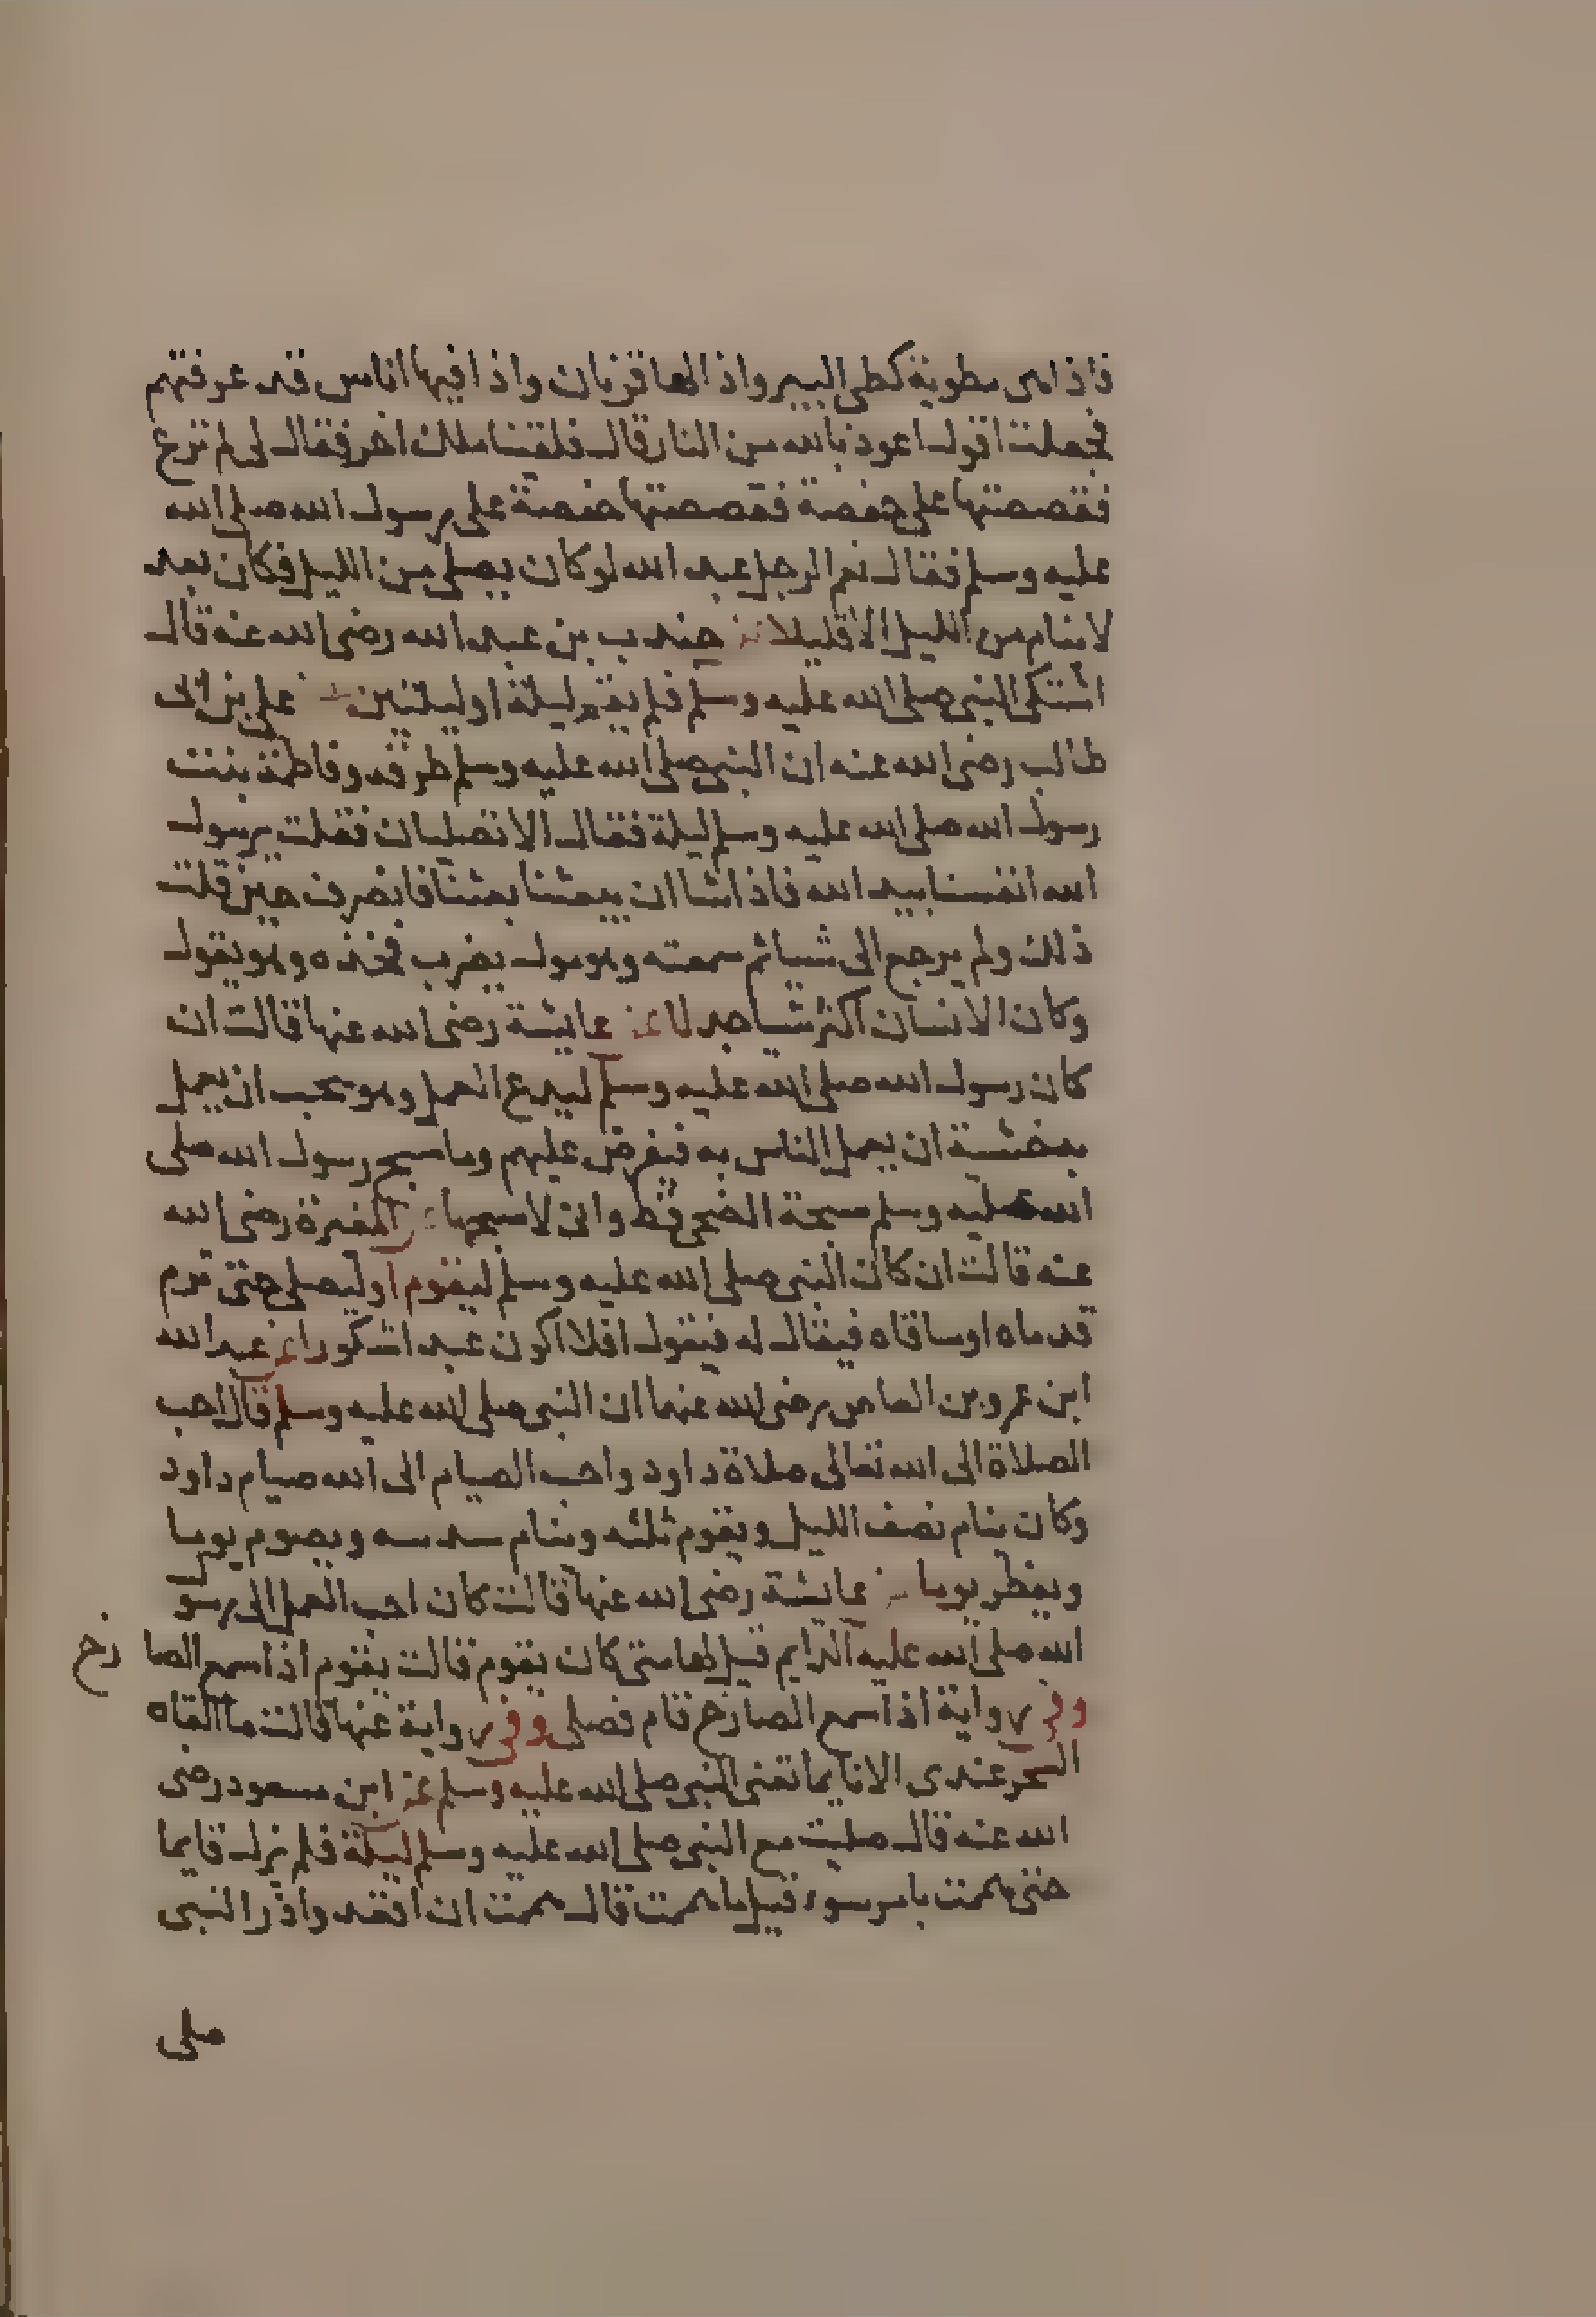 فاذا هي مطوية كطي البير واذا لها قرنان واذا فيها اناس قد عرفتهم
فجعلت اقول اعوذ بالله من النار قال فلقينا ملك اخر فقال لي لم ترع
فقصصتها على حفصة فقصصتها حفصة على رسول الله صلى الله
عليه وسلم فقال نعم الرجل عبد الله لو كان يصلي من الليل فكان بعد
لا ينام من الليل الا قليلا عن جندب بن عبد الله رضي الله عنه قال
اشتكى النبي صلى الله عليه وسلم فلم يقم ليلة او ليلتين عن علي بن ابي
طالب رضي الله عنه ان النبي صلى الله عليه وسلم طرقه وفاطمة بنت
رسول الله صلى الله عليه وسلم ليلة فقال الا تصليان فقلت يرسول
الله انفسنا بيد الله فاذا شا ان يبعثنا بعثنا فانصرف حين قلت
ذلك ولم يرجع الى شيا ثم سمعته وهو مول يضرب فخذه وهو يقول
وكان الانسان اكثر شيا جدلا عن عايشة رضي الله عنها قالت ان
كان رسول الله صلى الله عليه وسلم ليدع العمل وهو يحب ان يعمل
به خشية ان يعمل الناس به فيفرض عليهم وما سبح رسول الله صلى
الله عليه وسلم سبحة الضحى قط واني لاسبحها عن المغيرة رضي الله
عنه قالت ان كان النبي صلى الله عليه وسلم ليقوم او ليصلي حتى ترم
قدماه او ساقاه فيقال له فيقول افلا اكون عبدا شكورا عن عبد الله
ابن عمرو بن العاص رضي الله عنهما ان النبي صلى الله عليه وسلم قال احب
الصلاة الى الله تعالى صلاة داود واحب الصيام الى الله صيام داود
وكان ينام نصف الليل ويقوم ثلثه وينام سدسه ويصوم يوما
ويفطر يوما عن عايشة رضي الله عنها قالت كان احب العمل الى رسول
الله صلى الله عليه الدايم قيل لها متى كان يقوم قالت يقوم اذا سمع الصا رخ
وفي رواية اذا سمع الصارخ قام فصلى وفي رواية عنها قالت ما القاه
السحر عندي الا نايما تعني النبي صلى الله عليه وسلم عن ابن مسعود رضي
الله عنه قال صليت مع النبي صلى الله عليه وسلم ليلة فلم يزل قايما
حتى هممت بامر سوء قيل ما هممت قال هممت ان اقعد واذر النبي
صلى